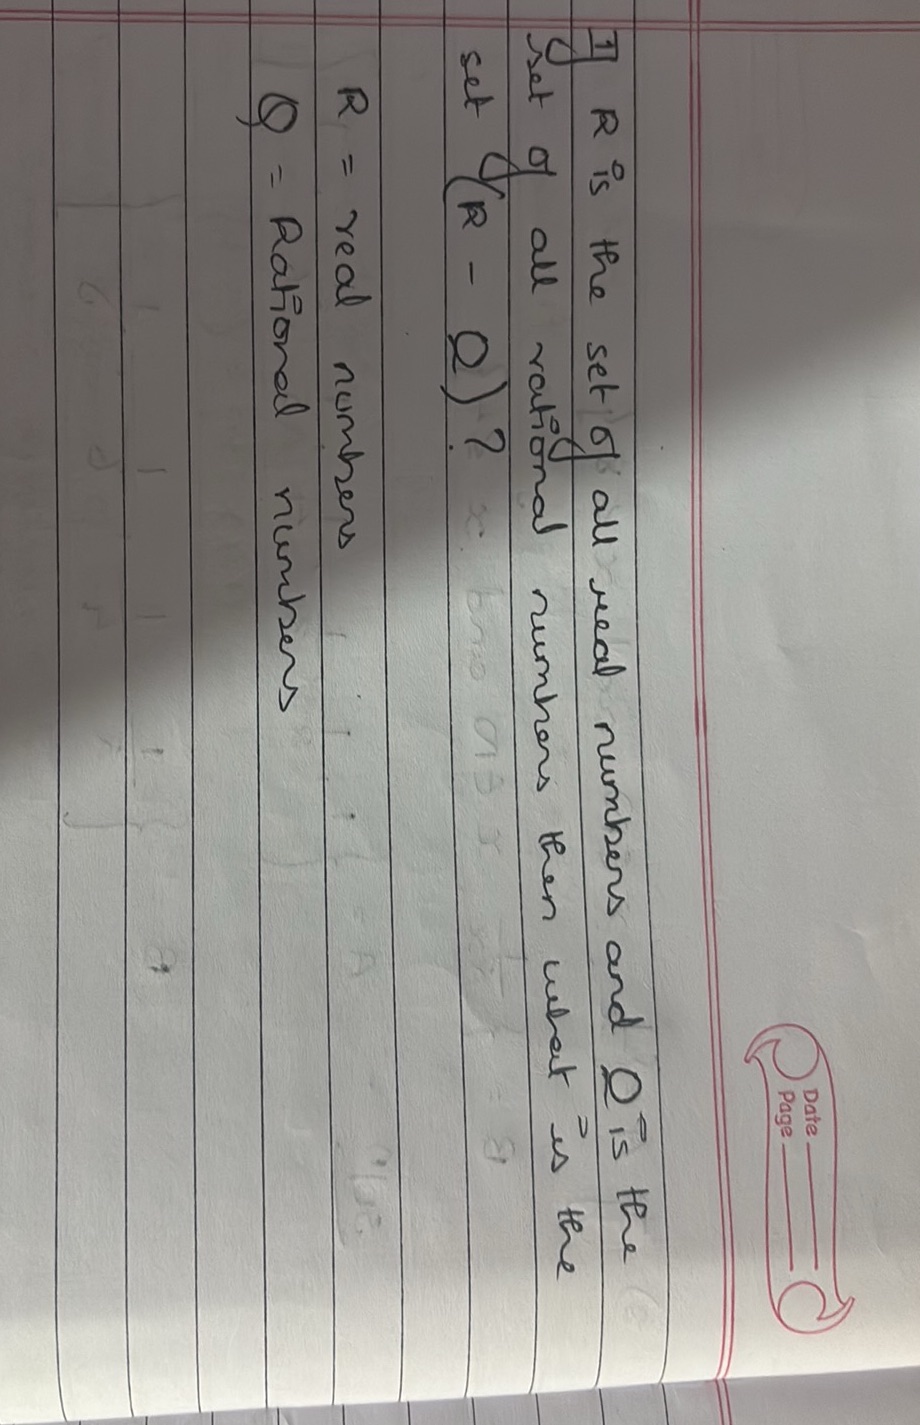 Date
Page
If R is the set of all real numbers and Q is the
set of all rational numbers then what is the
set of (R - Q) ?
R = real numbers
Q = Rational numbers